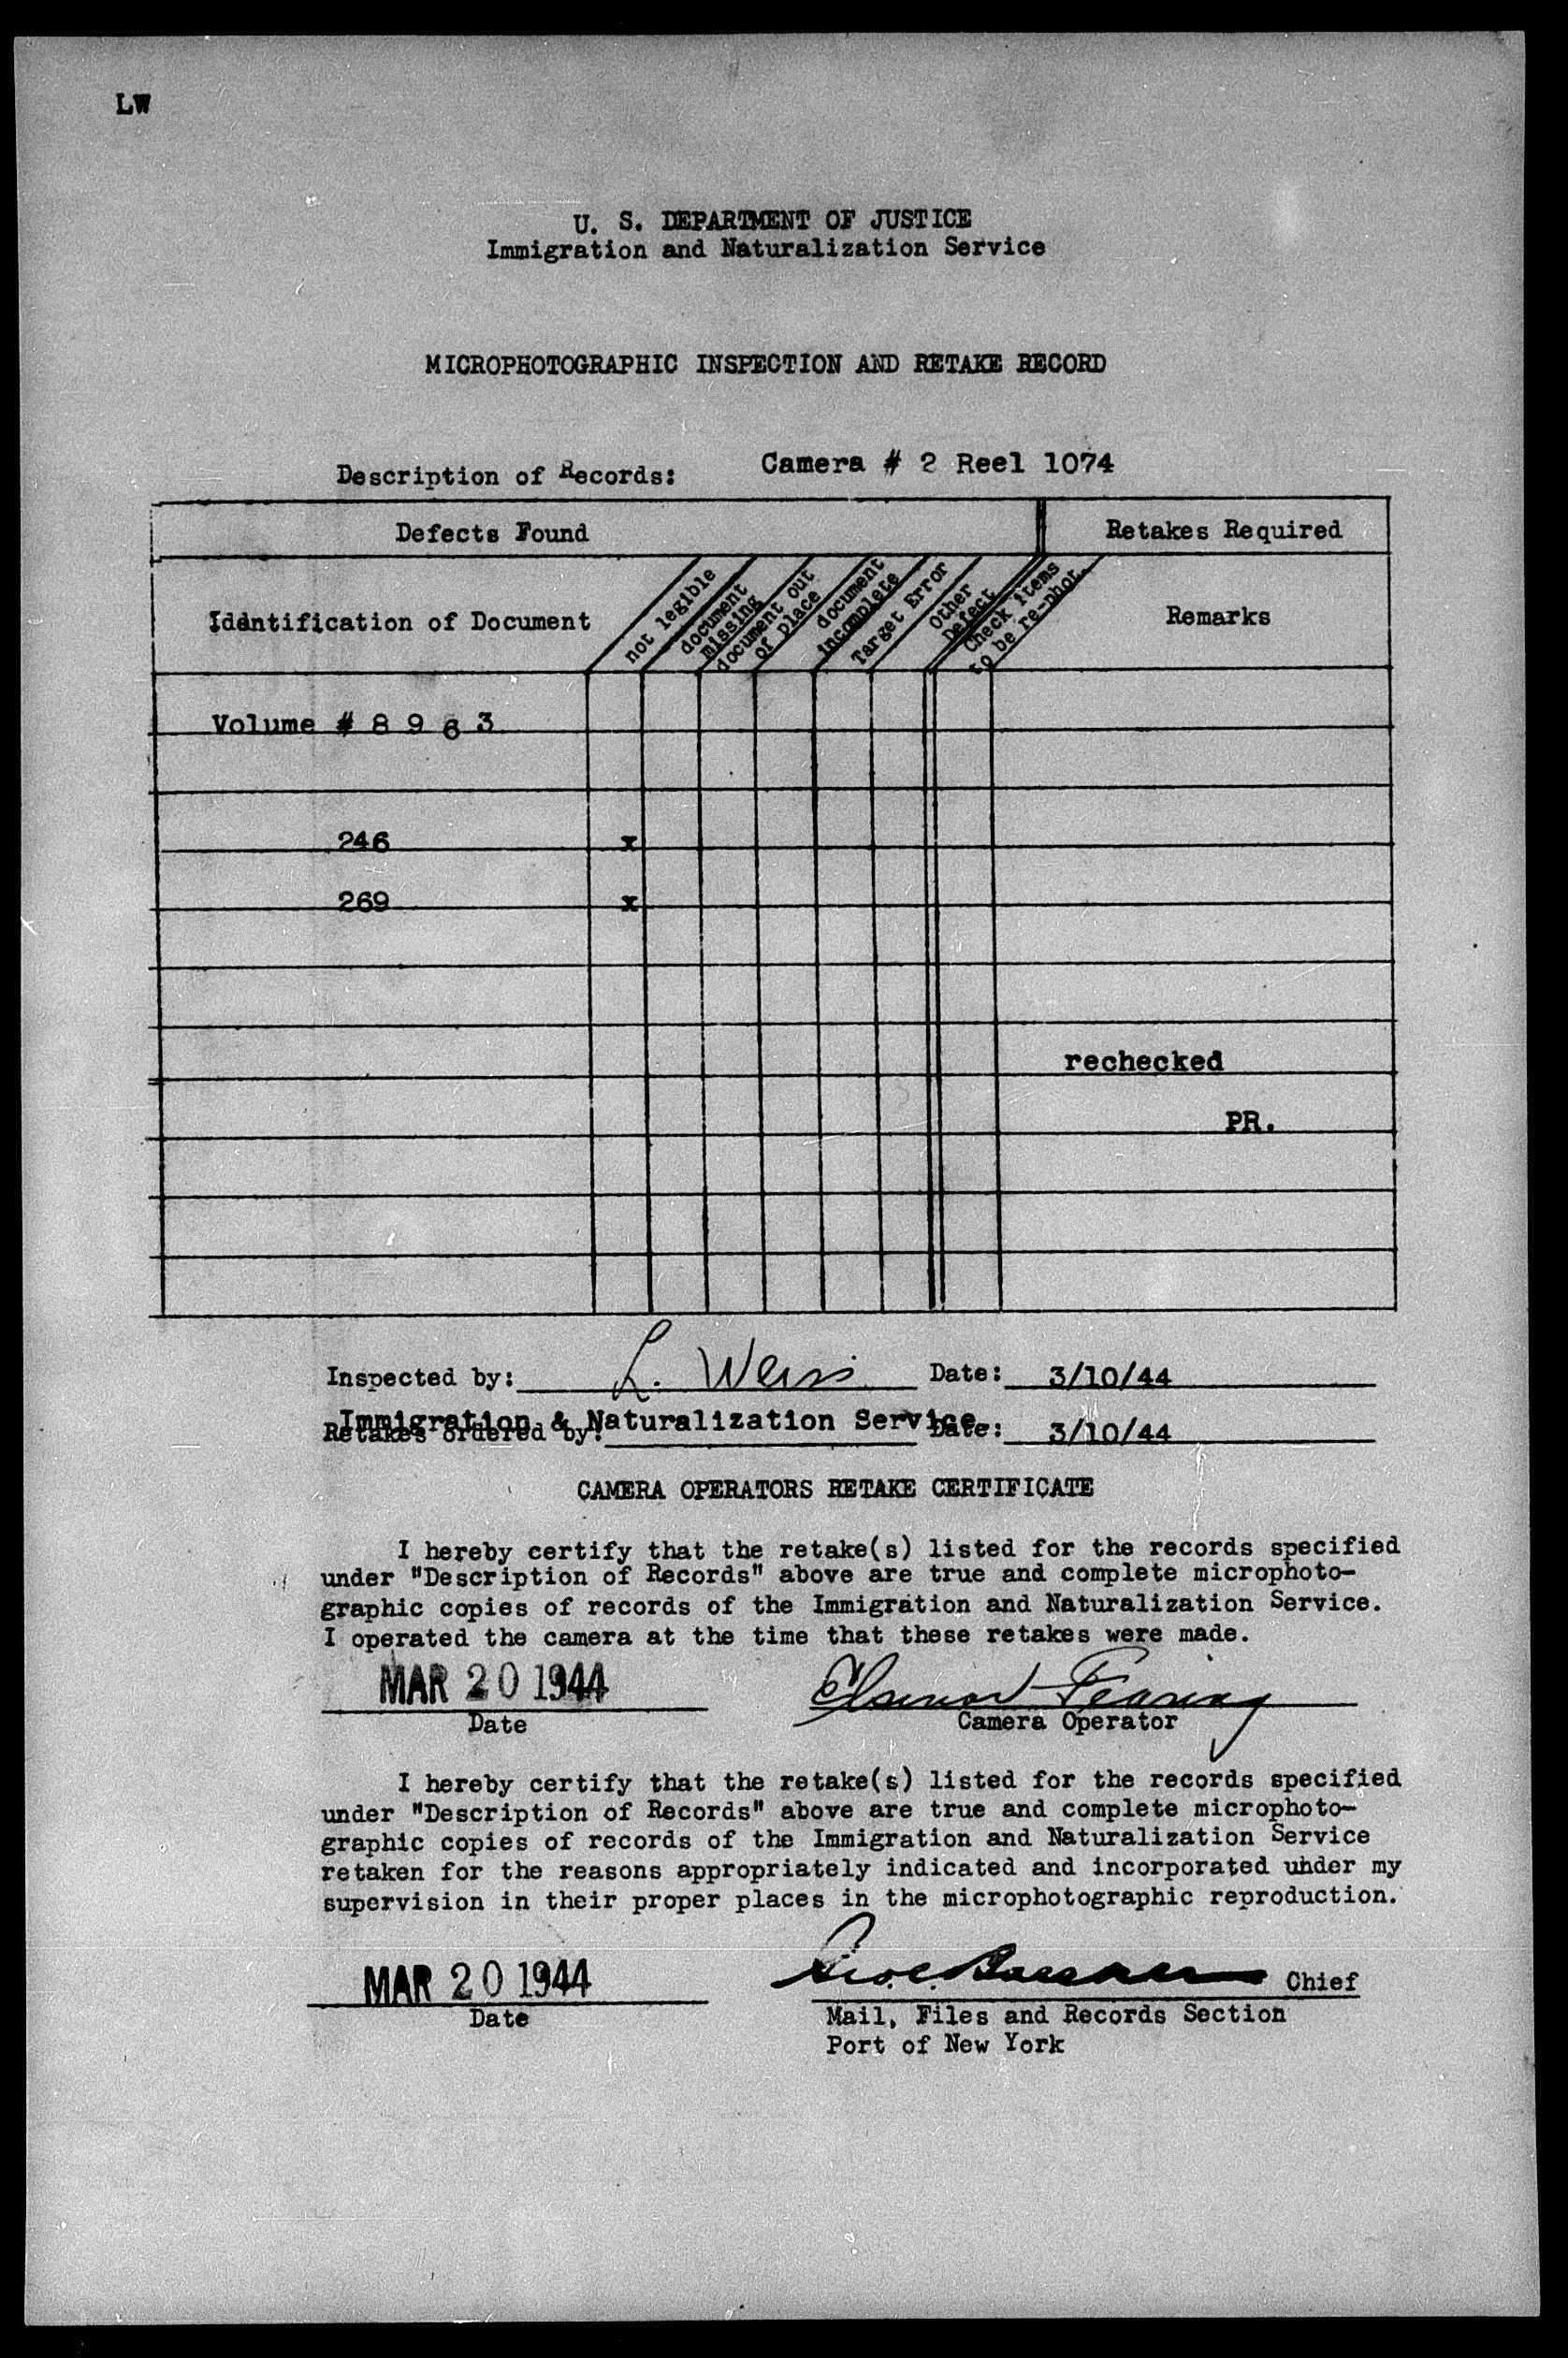 LW
U. S. DEPARTMENT OF JUSTICE
Immigration and Naturalization Service
MICROPHOTOGRAPHIC INSPECTION AND RETAKE RECORD
Description of Records: Camera # 2 Reel 1074
Defects Found Retakes Required
Identification of Document
not legible
document
missing
document out
of place
document
incomplete
Target Error
Other
Defect
Check items
to be re-phot.
Remarks
Volume # 8 9 6 3
246 x
269 x
rechecked
PR.
Inspected by: L. Weiss Date: 3/10/44
Immigration & Naturalization Service
Retakes ordered by: Date: 3/10/44
CAMERA OPERATORS RETAKE CERTIFICATE
I hereby certify that the retake(s) listed for the records specified
under "Description of Records" above are true and complete microphoto-
graphic copies of records of the Immigration and Naturalization Service.
I operated the camera at the time that these retakes were made.
MAR 20 1944
Date Camera Operator
I hereby certify that the retake(s) listed for the records specified
under "Description of Records" above are true and complete microphoto-
graphic copies of records of the Immigration and Naturalization Service
retaken for the reasons appropriately indicated and incorporated under my
supervision in their proper places in the microphotographic reproduction.
MAR 20 1944 Chief
Date Mail, Files and Records Section
Port of New York